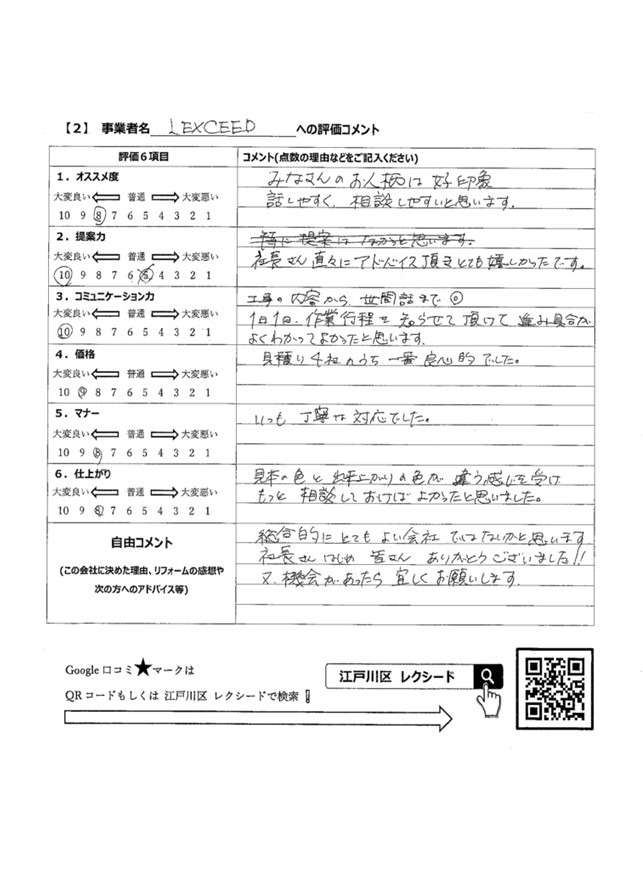 【2】 事業者名 LEXCEED への評価コメント
評価6項目 コメント(点数の理由などをご記入ください)
1. オススメ度
大変良い 普通 大変悪い
10 9 8 7 6 5 4 3 2 1
みなさんのお人柄は好印象
話しやすく、相談しやすいと思います。
2. 提案力
大変良い 普通 大変悪い
10 9 8 7 6 5 4 3 2 1
特に提案はなかったと思います。
社長さん直々にアドバイス頂きとても嬉しかったです。
3. コミュニケーション力
大変良い 普通 大変悪い
10 9 8 7 6 5 4 3 2 1
工事の内容から、世間話まで◎
1日1日、作業行程を知らせて頂けて進み具合が
よくわかってよかったと思います。
4. 価格
大変良い 普通 大変悪い
10 9 8 7 6 5 4 3 2 1
見積り4社のうち一番良心的でした。
5. マナー
大変良い 普通 大変悪い
10 9 8 7 6 5 4 3 2 1
いつも丁寧な対応でした。
6. 仕上がり
大変良い 普通 大変悪い
10 9 8 7 6 5 4 3 2 1
見本の色と出来上がりの色が違う感じを受け
もっと相談しておけばよかったと思いました。
自由コメント
(この会社に決めた理由、リフォームの感想や
次の方へのアドバイス等)
総合的にとてもよい会社ではないかと思います
社長さんはじめ皆さんありがとうございました!!
又、機会があったら宜しくお願いします。
Google 口コミ★マークは
QRコードもしくは 江戸川区 レクシードで検索!
江戸川区 レクシード